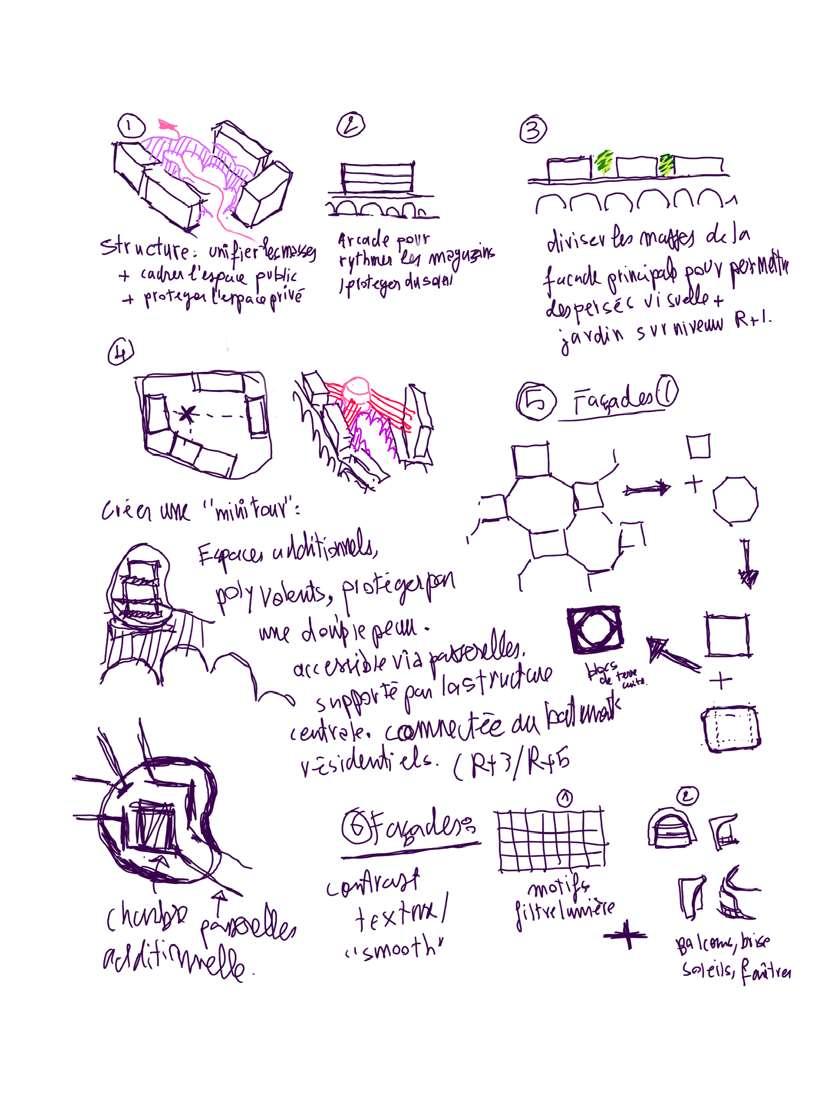 1
Structure: unifier les masses
+ cadrer l'espace public
+ protéger l'espace privé
2
Arcade pour
rythmer les magazins
/proteger du soleil
3
diviser les masses de la
façade principale pour permettre
des persée visuelle +
jardin sur niveau R+1.
4
Créer une "mini tour":
Espaces additionnels,
polyvalents, protéger par
une double peau.
accessible via passerelles.
supporté par la structure
centrale. connectée au batiments
résidentiels. (R+3/R+5
chambre
additionnelle.
passerelles
5 Façades 1
+
blocs
de terre
cuite.
+
6 Façades:
contrast
textur/
"smooth"
1
motifs
filtre lumière
+
2
Balcons, brise
soleils, fenêtres